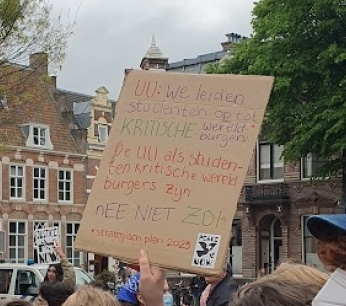 UU: We leiden
studenten op tot
KRITISCHE wereld-
burgers*
De UU als studen-
ten kritische wereld
burgers zijn
nEE NIET ZO!
*strategisch plan 2025
NOW